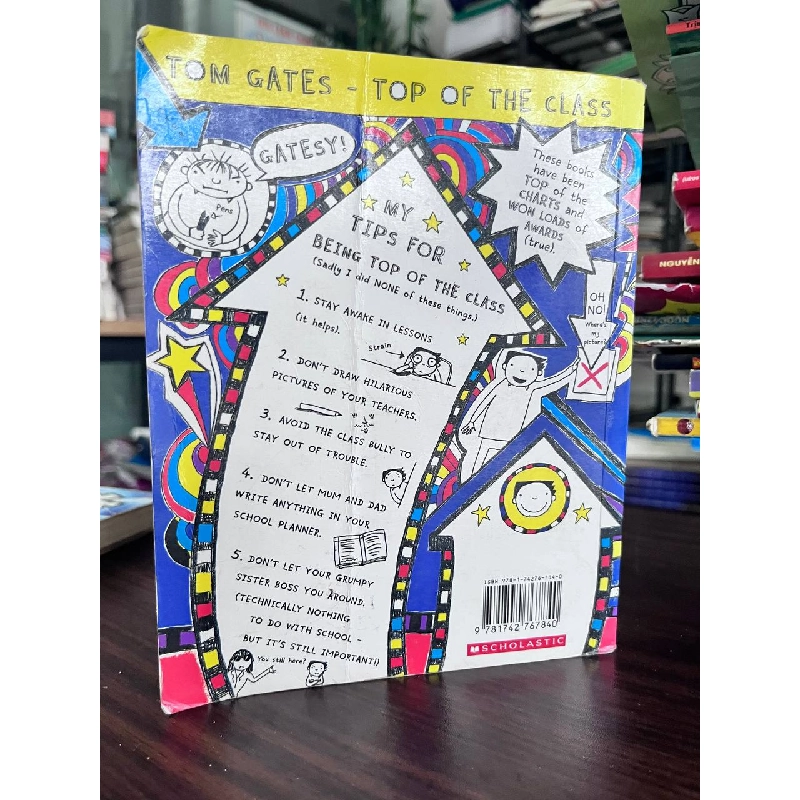 TOM GATES - TOP OF THE CLASS
GATESY!
Pens
These books
have been
TOP of the
CHARTS and
WON LOADS of
AWARDS
(true).
MY
TIPS FOR
BEING TOP OF THE CLASS
(Sadly I did NONE of these things.)
1. STAY AWAKE IN LESSONS
(it helps).
Strain
2. DON'T DRAW HILARIOUS
PICTURES OF YOUR TEACHERS.
3. AVOID THE CLASS BULLY TO
STAY OUT OF TROUBLE.
4. DON'T LET MUM AND DAD
WRITE ANYTHING IN YOUR
SCHOOL PLANNER.
5. DON'T LET YOUR GRUMPY
SISTER BOSS YOU AROUND.
(TECHNICALLY NOTHING
TO DO WITH SCHOOL -
BUT IT'S STILL IMPORTANT!)
You still here?
OH
NO!
Where's
my
picture?
9 781742 767840
SCHOLASTIC
NGUYỄN